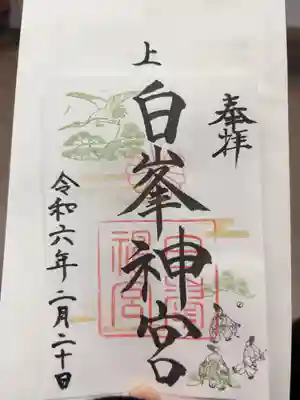 奉拝
上
白峯神宮
令和六年二月二十日